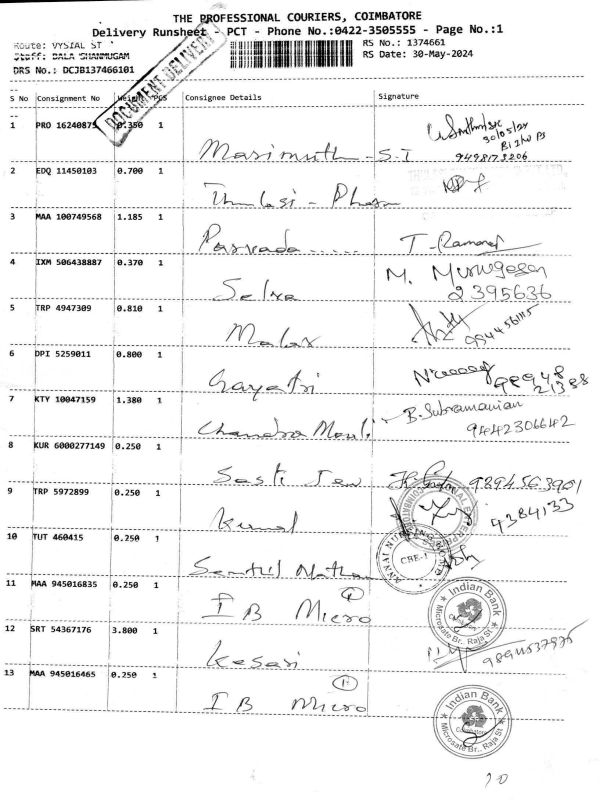 THE PROFESSIONAL COURIERS, COIMBATORE
Delivery Runsheet - PCT - Phone No.:0422-3505555 - Page No.:1
Route: VYSIAL ST
RS No.: 1374661
Staff: BALA SHANMUGAM
RS Date: 30-May-2024
DRS No.: DCJB137466101
DOCUMENT DELIVERY
S No Consignment No Weight PCS Consignee Details Signature
1 PRO 16240875 0.350 1 Marimuth - S.I 30/05/24 9498173206
2 EDQ 11450103 0.700 1 Thulasi - Pharm
3 MAA 100749568 1.185 1 Parvada ...... T. Ramanat
4 IXM 506438887 0.370 1 Selva M. Murugesan 2395636
5 TRP 4947309 0.810 1 Malar
6 DPI 5259011 0.800 1 Gayatri 98948 21388
7 KTY 10047159 1.380 1 Chandra Mouli B. Subramanian 9442306642
8 KUR 6000277149 0.250 1 Sasti Jew 9894563901
9 TRP 5972899 0.250 1 Kumal 4384133
10 TUT 460415 0.250 1 Senthil Nathan CBE-1
11 MAA 945016835 0.250 1 I B Micro Indian Bank Microsate Br., Raja St
12 SRT 54367176 3.800 1 Kesari
13 MAA 945016465 0.250 1 I B Micro Indian Bank Coimbatore Microsate Br., Raja St